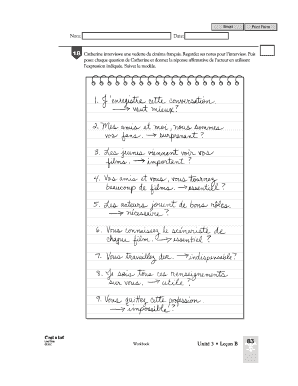 Reset
Print Form
Nom:
Date:
18 Catherine interviewe une vedette du cinéma français. Regardez ses notes pour l'interview. Puis
posez chaque question de Catherine et donnez la réponse affirmative de l'acteur en utilisant
l'expression indiquée. Suivez le modèle.
1. J'enregistre cette conversation.
→ vaut mieux?
2. Mes amis et moi, nous sommes
vos fans. → surprenant?
3. Les jeunes viennent voir vos
films. → important?
4. Vos amis et vous, vous tournez
beaucoup de films. → essentiel?
5. Les acteurs jouent de bons rôles.
→ nécessaire?
6. Vous connaissez le scénariste de
chaque film. → essentiel?
7. Vous travaillez dur. → indispensable?
8. Je sais tous ces renseignements
sur vous. → utile?
9. Vous quittez cette profession.
→ impossible?
Workbook
Unité 3 • Leçon B
83